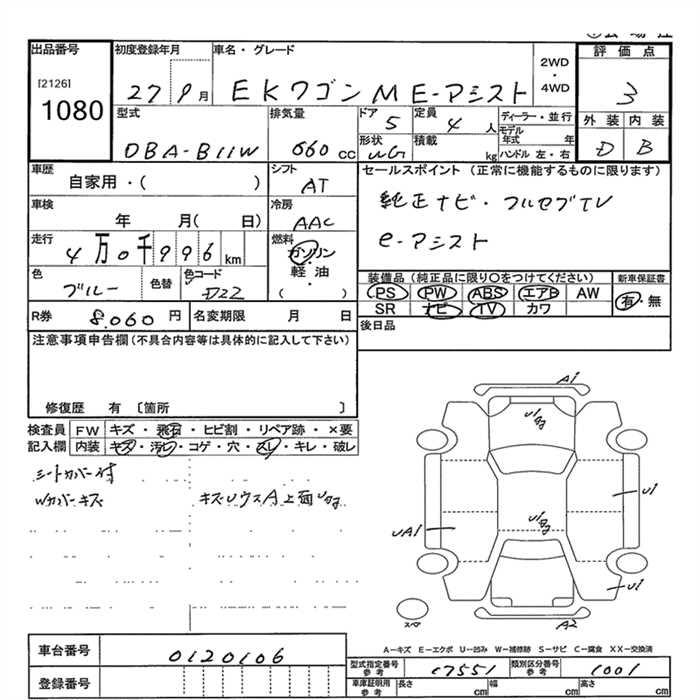 出品番号 初度登録年月 車名・グレード 評価点
[2126]
1080
27 9月 EKワゴン M E-アシスト
2WD
・
4WD
3
型式 排気量 ドア 定員 ディーラー・並行
DBA-B11W 660 CC 5 4人
モデル年式 年
外装 内装
D B
形状 積載 kg ハンドル 左・右
車歴 シフト セールスポイント (正常に機能するものに限ります)
自家用・( ) AT
純正ナビ・フルセグTV
車検 冷房
年 月( 日) AAC
e-アシスト
走行 燃料
4万0千996km ガソリン
軽・油
( ・ )
色 色替 色コード
ブルー D22
装備品 (純正品に限り〇をつけてください) 新車保証書
PS PW ABS エアB AW 有・無
SR ナビ TV カワ
R券 8,060円 名変期限 月 日
後日品
注意事項申告欄(不具合内容等は具体的に記入して下さい)
修復歴 有 〔箇所 〕
検査員 FW キズ・飛石・ヒビ割・リペア跡・×要
記入欄 内装 キズ・汚レ・コゲ・穴・スレ・キレ・破レ
シートカバー付
Wカバーキズ
キズUウスA上面U
A1
U1
U1
UA1
U1
U1
スペア
A2
A-キズ E-エクボ U-凹み W-補修跡 S-サビ C-腐食 XX-交換済
車台番号 0120106
登録番号
型式指定番号 参考 17551 類別区分番号 参考 1001
車庫証明用 参考 長さ cm 幅 cm 高さ cm